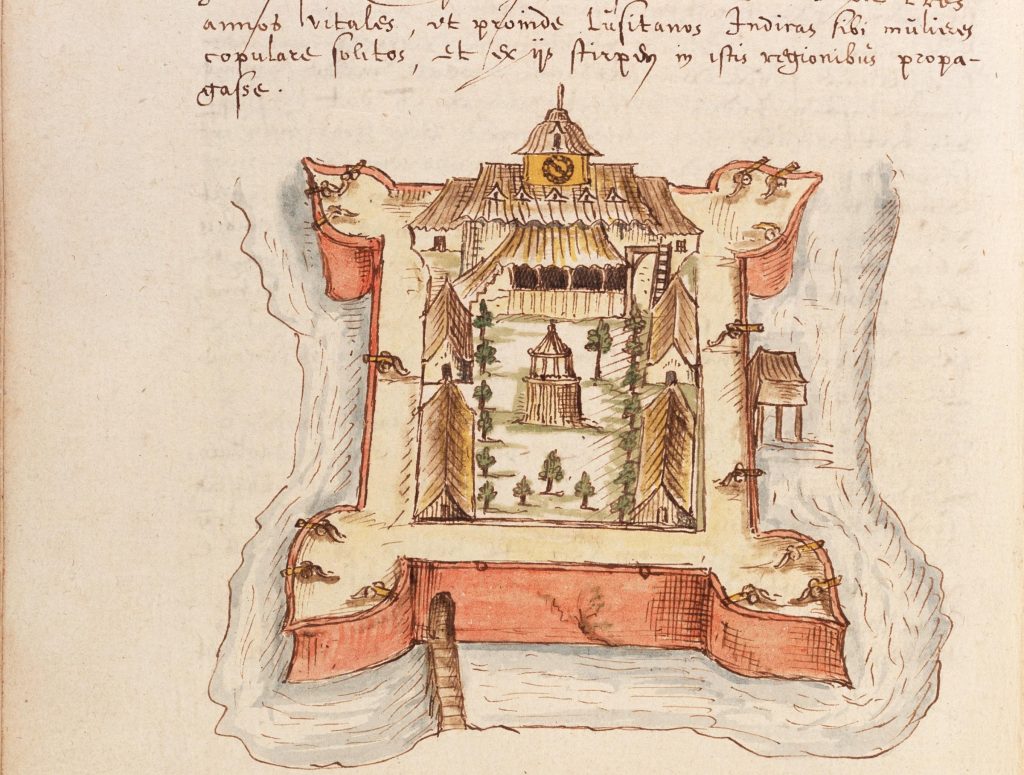 annos vitales, ut proinde Lusitanos Indicas sibi mulieres
copulare solitos, et ex ijs stirpem in istis regionibus propa-
gasse.